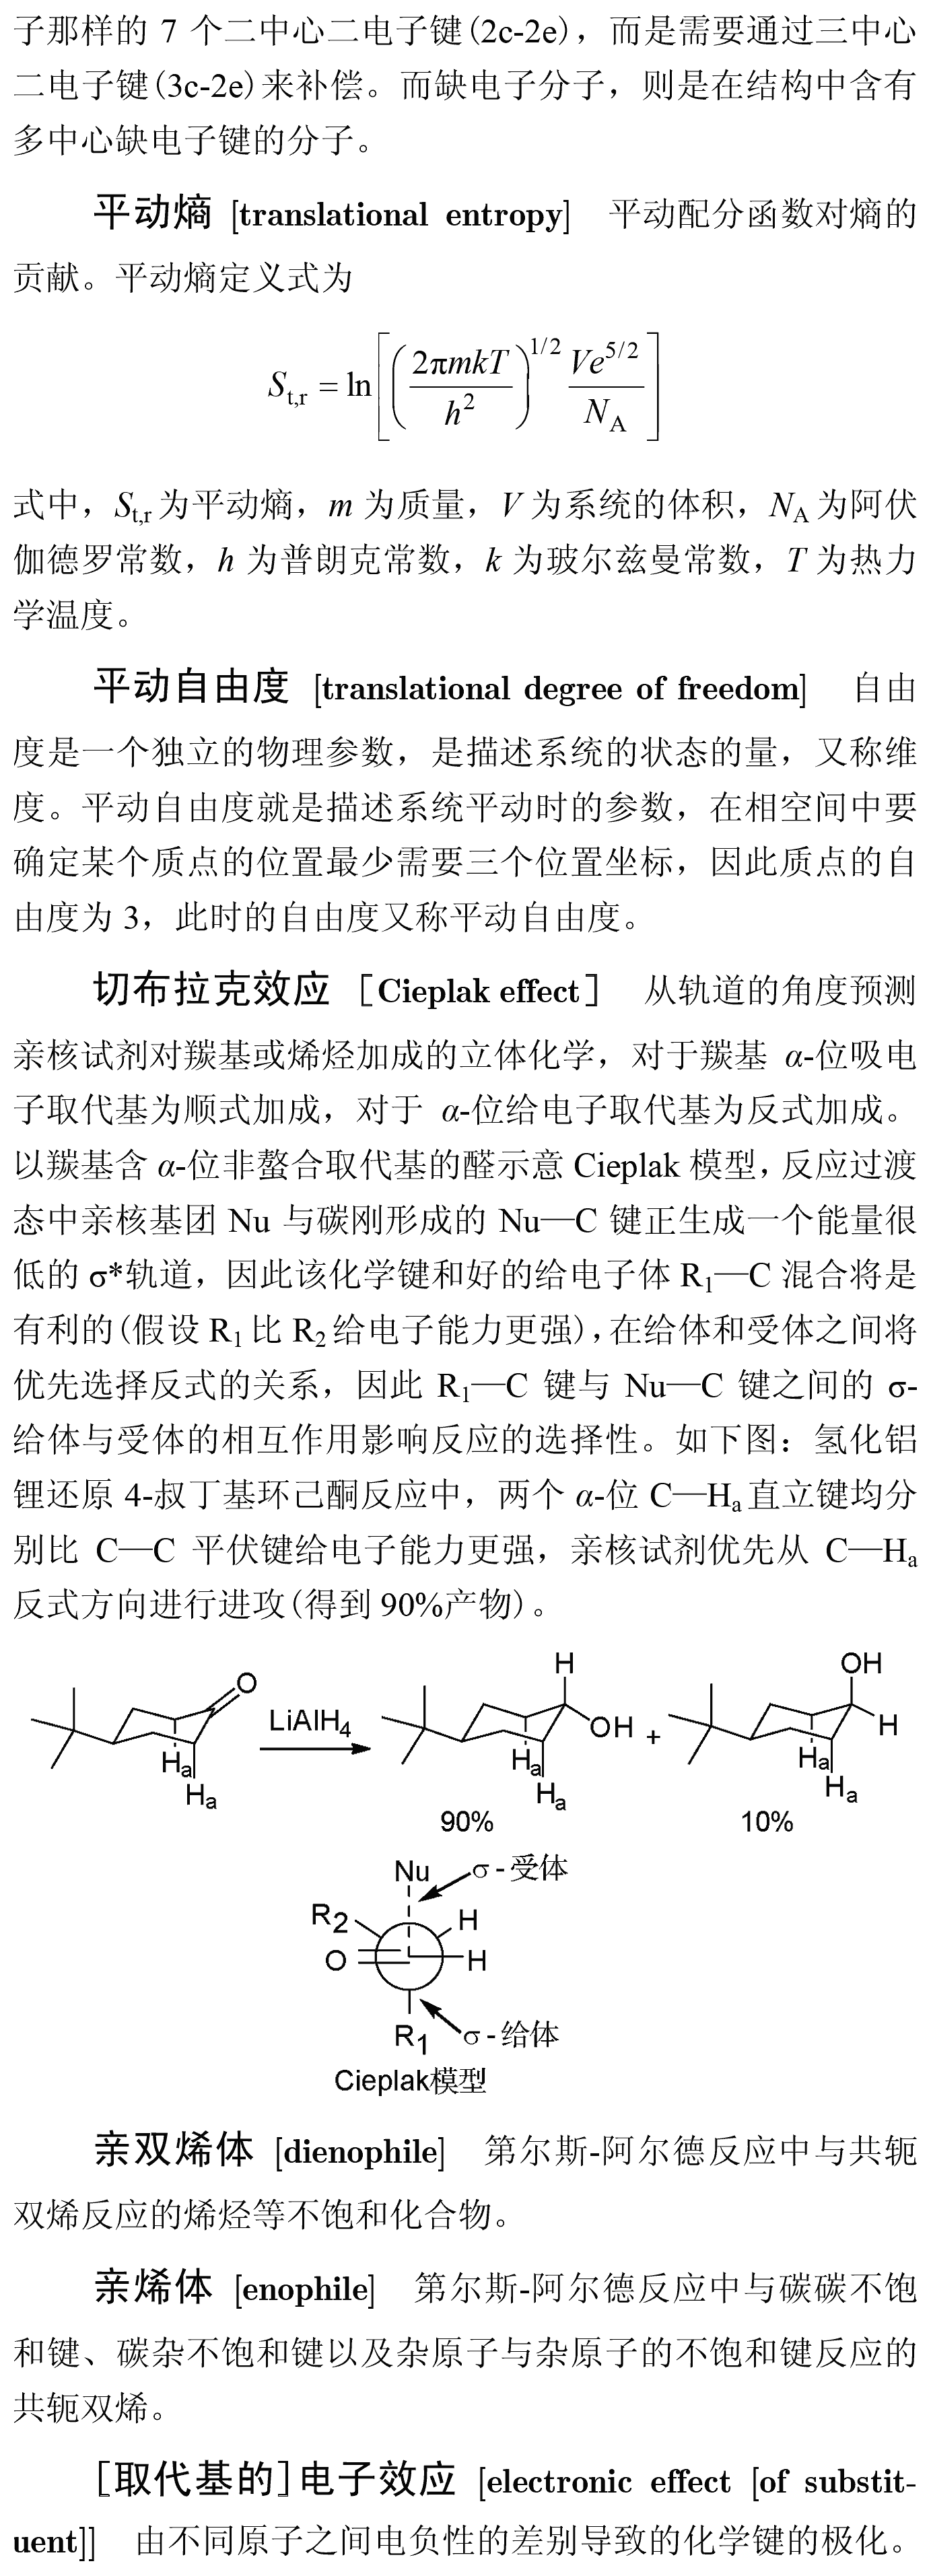 子那样的 7 个二中心二电子键(2c-2e)，而是需要通过三中心
二电子键(3c-2e)来补偿。而缺电子分子，则是在结构中含有
多中心缺电子键的分子。
平动熵 [translational entropy]　平动配分函数对熵的
贡献。平动熵定义式为
S_{t,r} = ln[(2πmkT/h²)^{1/2} Ve^{5/2}/N_A]
式中，S_{t,r}为平动熵，m 为质量，V 为系统的体积，N_A为阿伏
伽德罗常数，h 为普朗克常数，k 为玻尔兹曼常数，T 为热力
学温度。
平动自由度 [translational degree of freedom]　自由
度是一个独立的物理参数，是描述系统的状态的量，又称维
度。平动自由度就是描述系统平动时的参数，在相空间中要
确定某个质点的位置最少需要三个位置坐标，因此质点的自
由度为 3，此时的自由度又称平动自由度。
切布拉克效应［Cieplak effect］　从轨道的角度预测
亲核试剂对羰基或烯烃加成的立体化学，对于羰基 α-位吸电
子取代基为顺式加成，对于 α-位给电子取代基为反式加成。
以羰基含 α-位非螯合取代基的醛示意 Cieplak 模型，反应过渡
态中亲核基团 Nu 与碳刚形成的 Nu—C 键正生成一个能量很
低的 σ*轨道，因此该化学键和好的给电子体 R₁—C 混合将是
有利的(假设 R₁ 比 R₂ 给电子能力更强)，在给体和受体之间将
优先选择反式的关系，因此 R₁—C 键与 Nu—C 键之间的 σ-
给体与受体的相互作用影响反应的选择性。如下图：氢化铝
锂还原 4-叔丁基环己酮反应中，两个 α-位 C—Hₐ 直立键均分
别比 C—C 平伏键给电子能力更强，亲核试剂优先从 C—Hₐ
反式方向进行进攻(得到 90%产物)。
O
Ha
Ha
LiAlH₄
H
OH
Ha
Ha
90%
+
OH
H
Ha
Ha
10%
Nu
σ-受体
R₂
H
O
H
R₁
σ-给体
Cieplak模型
亲双烯体 [dienophile]　第尔斯-阿尔德反应中与共轭
双烯反应的烯烃等不饱和化合物。
亲烯体 [enophile]　第尔斯-阿尔德反应中与碳碳不饱
和键、碳杂不饱和键以及杂原子与杂原子的不饱和键反应的
共轭双烯。
[取代基的]电子效应 [electronic effect [of substit-
uent]]　由不同原子之间电负性的差别导致的化学键的极化。